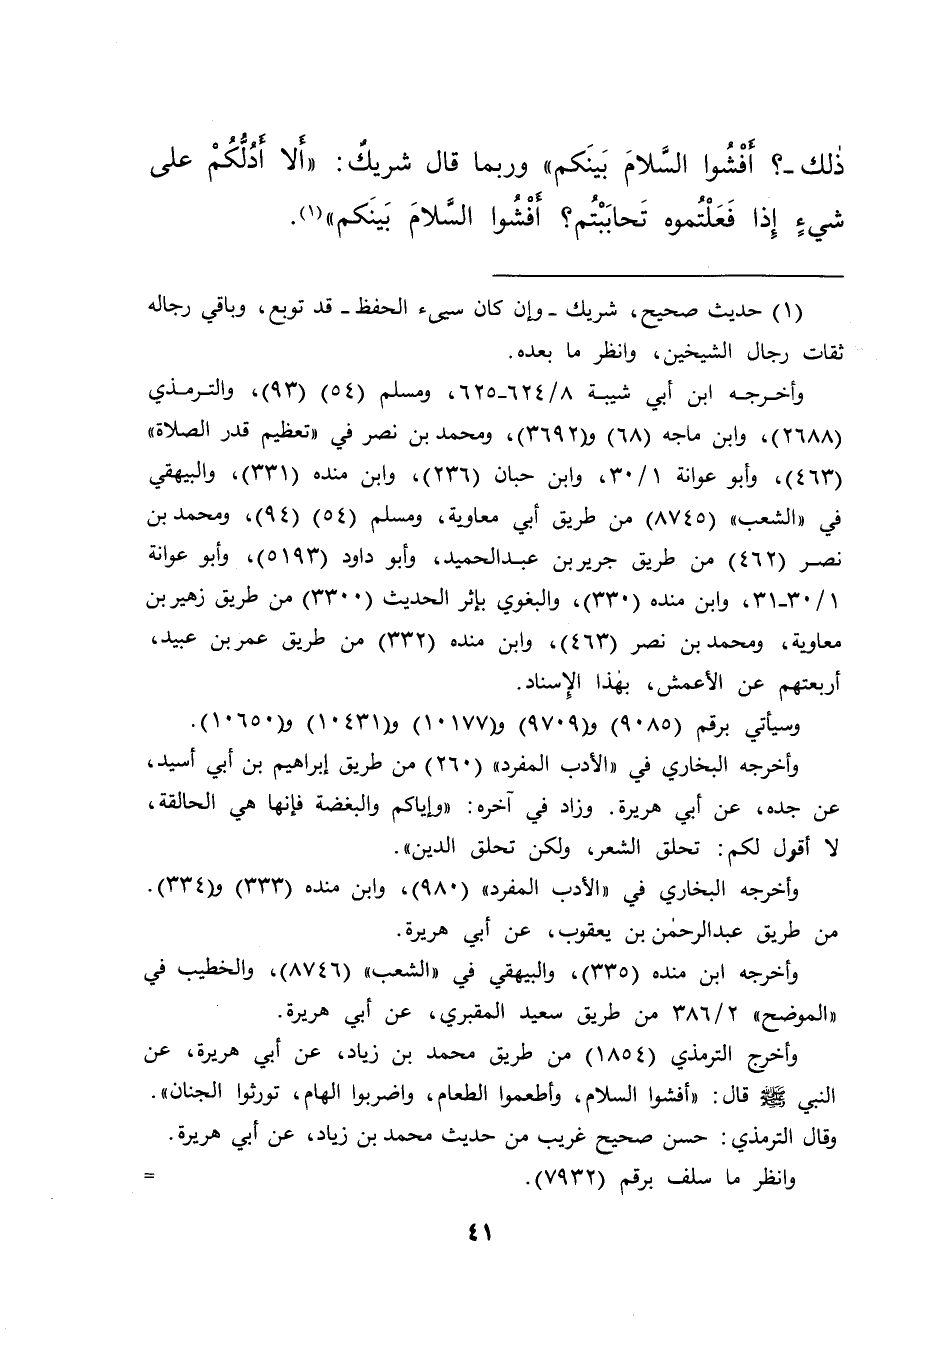 ذٰلك ـ؟ أَفْشُوا السَّلامَ بَينَكم» وربما قال شريكٌ: «أَلا أَدُلُّكُمْ على
شيءٍ إِذا فَعَلْتُموه تَحابَبْتُم؟ أَفْشُوا السَّلامَ بَينَكم»(١).
(١) حديث صحيح، شريك ـ وإن كان سيىء الحفظ ـ قد توبع، وباقي رجاله
ثقات رجال الشيخين، وانظر ما بعده.
وأخرجه ابن أبي شيبة ٦٢٤/٨ـ٦٢٥، ومسلم (٥٤) (٩٣)، والترمذي
(٢٦٨٨)، وابن ماجه (٦٨) و(٣٦٩٢)، ومحمد بن نصر في «تعظيم قدر الصلاة»
(٤٦٣)، وأبو عوانة ٣٠/١، وابن حبان (٢٣٦)، وابن منده (٣٣١)، والبيهقي
في «الشعب» (٨٧٤٥) من طريق أبي معاوية، ومسلم (٥٤) (٩٤)، ومحمد بن
نصر (٤٦٢) من طريق جرير بن عبدالحميد، وأبو داود (٥١٩٣)، وأبو عوانة
٣٠/١ـ٣١، وابن منده (٣٣٠)، والبغوي بإثر الحديث (٣٣٠٠) من طريق زهير بن
معاوية، ومحمد بن نصر (٤٦٣)، وابن منده (٣٣٢) من طريق عمر بن عبيد،
أربعتهم عن الأعمش، بهٰذا الإسناد.
وسيأتي برقم (٩٠٨٥) و(٩٧٠٩) و(١٠١٧٧) و(١٠٤٣١) و(١٠٦٥٠).
وأخرجه البخاري في «الأدب المفرد» (٢٦٠) من طريق إبراهيم بن أبي أسيد،
عن جده، عن أبي هريرة. وزاد في آخره: «وإياكم والبغضة فإنها هي الحالقة،
لا أقول لكم: تحلق الشعر، ولكن تحلق الدين».
وأخرجه البخاري في «الأدب المفرد» (٩٨٠)، وابن منده (٣٣٣) و(٣٣٤).
من طريق عبدالرحمٰن بن يعقوب، عن أبي هريرة.
وأخرجه ابن منده (٣٣٥)، والبيهقي في «الشعب» (٨٧٤٦)، والخطيب في
«الموضح» ٣٨٦/٢ من طريق سعيد المقبري، عن أبي هريرة.
وأخرج الترمذي (١٨٥٤) من طريق محمد بن زياد، عن أبي هريرة، عن
النبي ﷺ قال: «أفشوا السلام، وأطعموا الطعام، واضربوا الهام، تورثوا الجنان».
وقال الترمذي: حسن صحيح غريب من حديث محمد بن زياد، عن أبي هريرة.
وانظر ما سلف برقم (٧٩٣٢). =
٤١